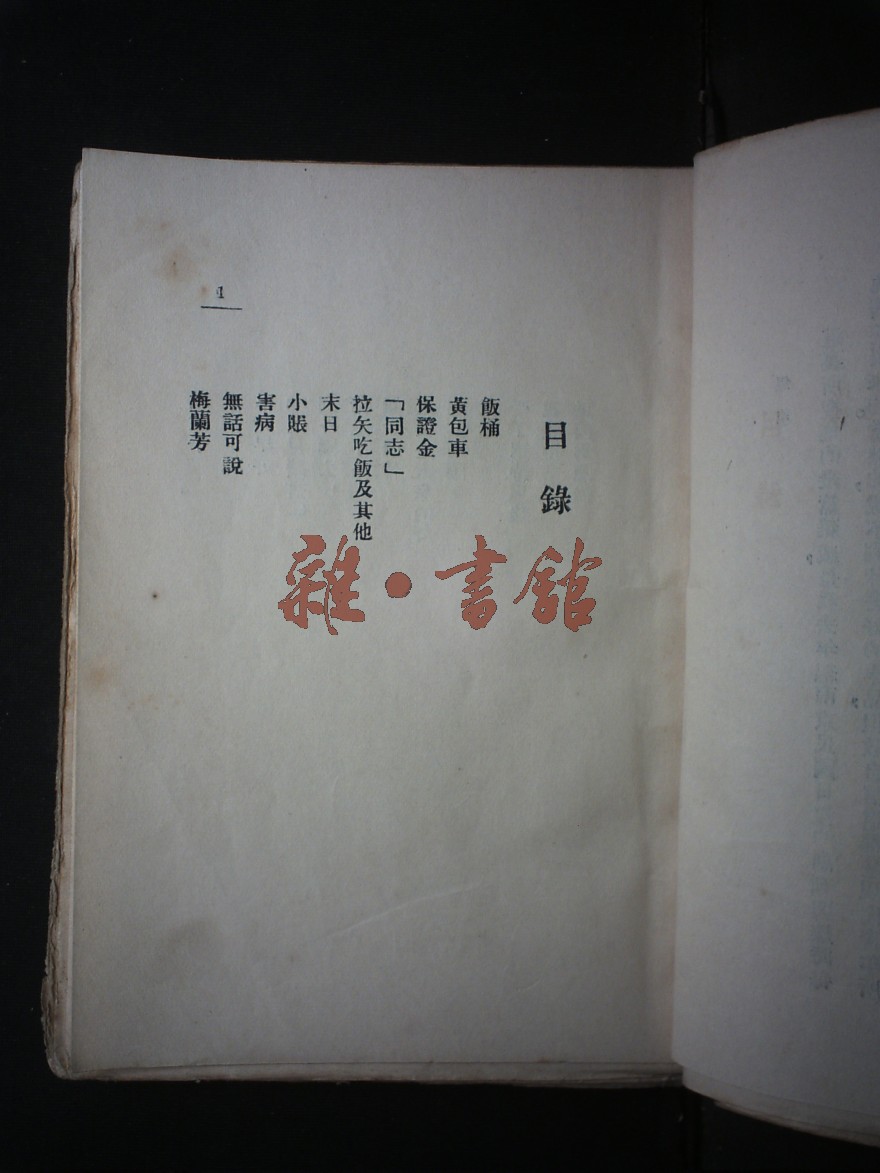 目錄
飯桶
黃包車
保證金
「同志」
拉矢吃飯及其他
末日
小賬
害病
無話可說
梅蘭芳
1
雜•書館